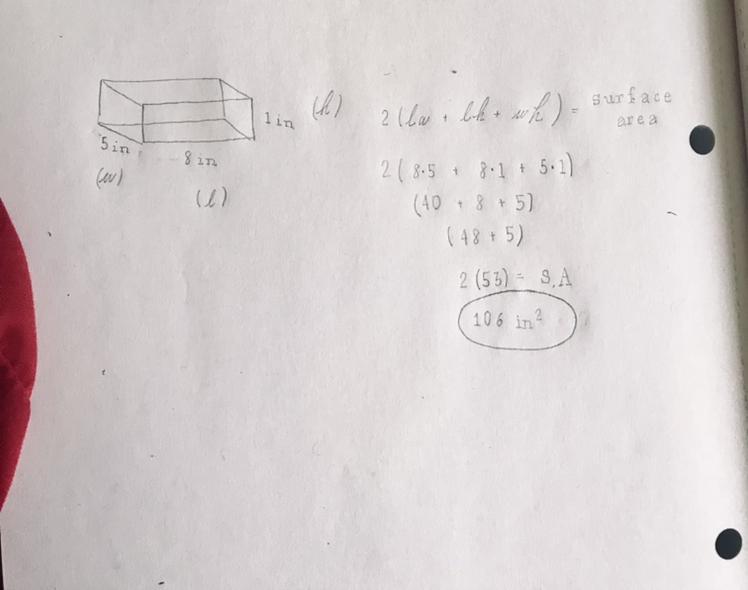 1 in (h)
5 in
(w)
8 in
(l)
2 (lw + lh + wh) = surface area
2 ( 8·5 + 8·1 + 5·1)
(40 + 8 + 5)
(48 + 5)
2 (53) = S.A
106 in²